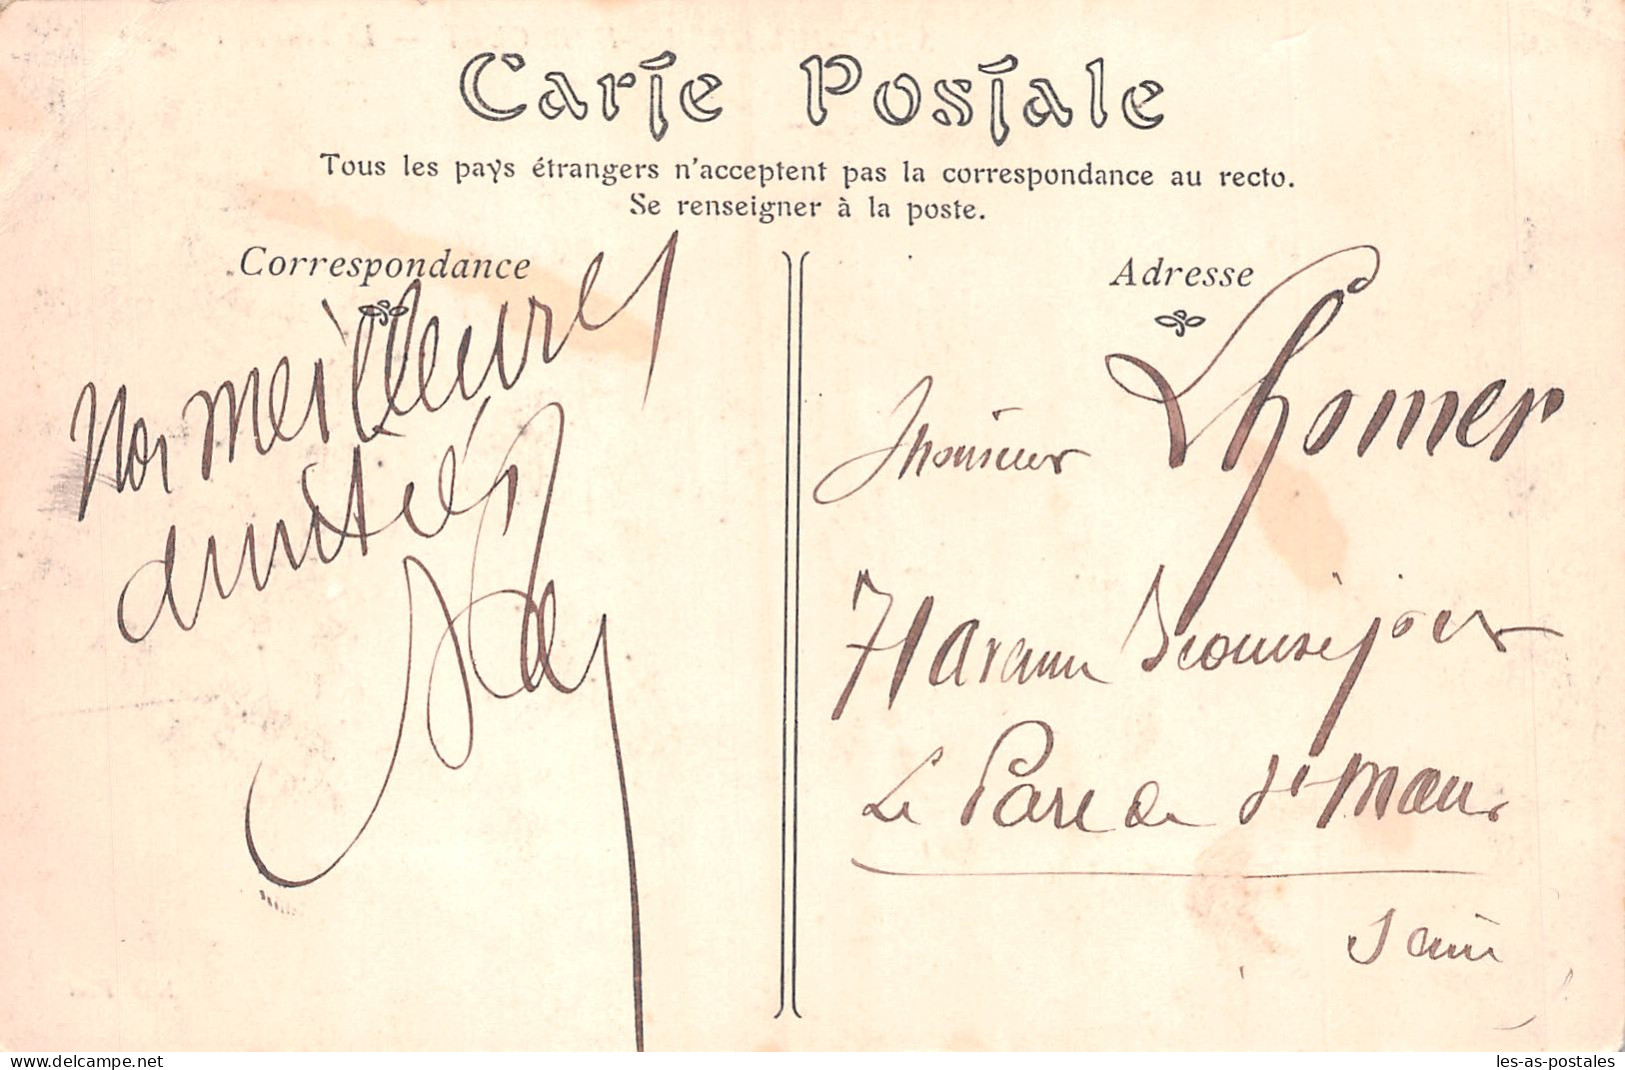 Carte Postale
Tous les pays étrangers n'acceptent pas la correspondance au recto.
Se renseigner à la poste.
Correspondance
Nos meilleures
amitiés
Adresse
Monsieur Lhomer
71 avenue Beauséjour
Le Parc de St-Maur
Seine
www.delcampe.net
les-as-postales